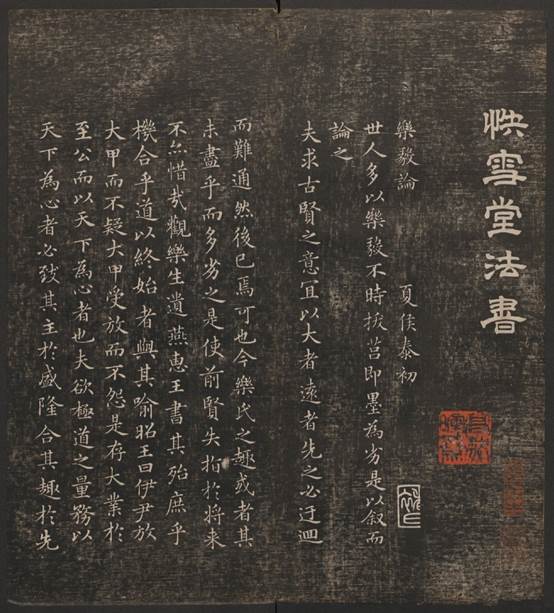 快雪堂法書
樂毅論 夏侯泰初
世人多以樂毅不時拔莒即墨為劣是以叙而
論之
夫求古賢之意宜以大者遠者先之必迂迴
而難通然後已焉可也今樂氏之趣或者其
未盡乎而多劣之是使前賢失指於将來
不亦惜哉觀樂生遺燕惠王書其殆庶乎
機合乎道以終始者與其喻昭王曰伊尹放
大甲而不疑大甲受放而不怨是存大業於
至公而以天下為心者也夫欲極道之量務以
天下為心者必致其主於盛隆合其趣於先